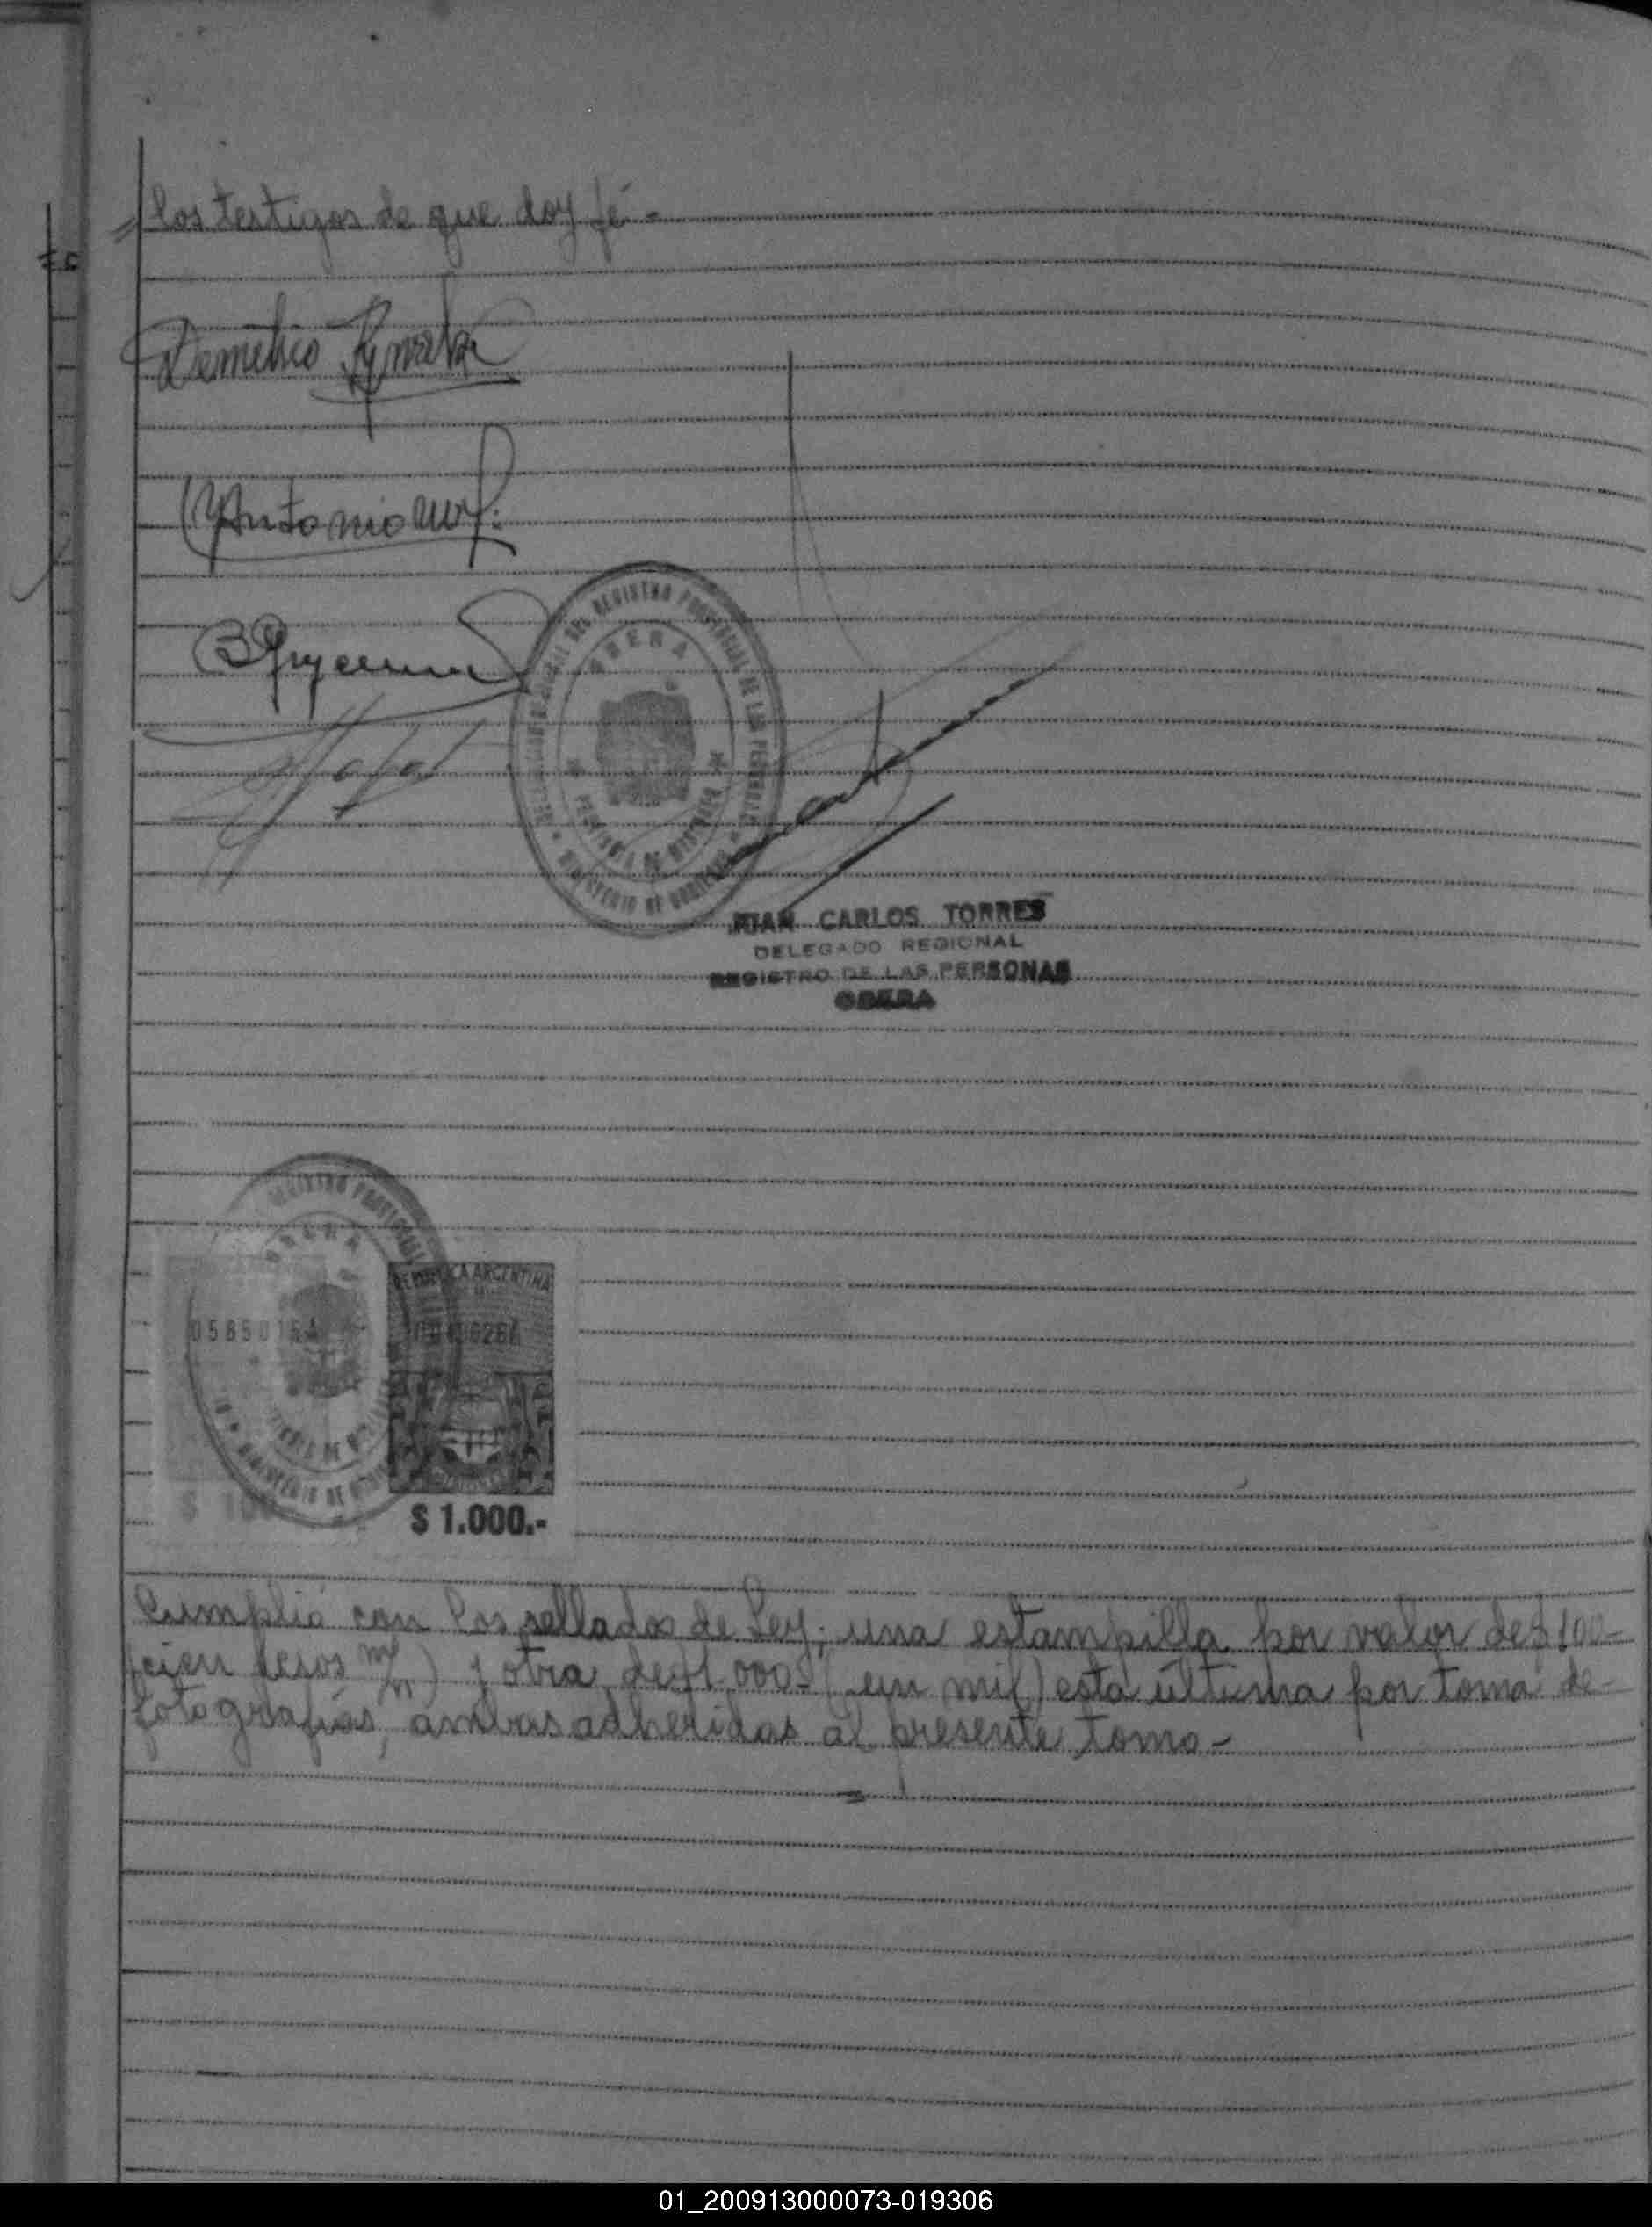 = los testigos de que doy fé -
Demetrio
Antonio
OBERA
PROVINCIA DE MISIONES
REGISTRO PROVINCIAL DE LAS PERSONAS
MINISTERIO DE GOBIERNO
JUAN CARLOS TORRES
DELEGADO REGIONAL
REGISTRO DE LAS PERSONAS
OBERA
REGISTRO PROVINCIAL
OBERA
REPUBLICA ARGENTINA
$ 100
$ 1.000.-
Cumplió con los sellados de Ley; una estampilla por valor de $ 100-
(cien pesos m/n) y otra de $1.000- (un mil) esta última por toma de-
fotografías, ambas adheridas al presente tomo-
=
01_200913000073-019306